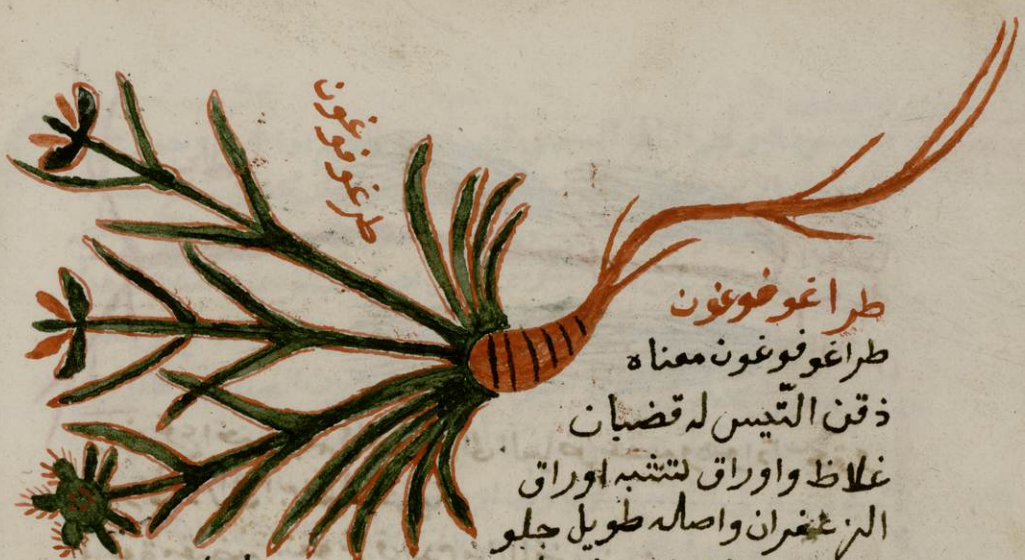 طرغوفوغون
طراغوفوغون
طراغوفوغون معناه
ذقن التّيس له قضبان
غلاظ واوراق تشبه اوراق
الزعفران واصله طويل حلو